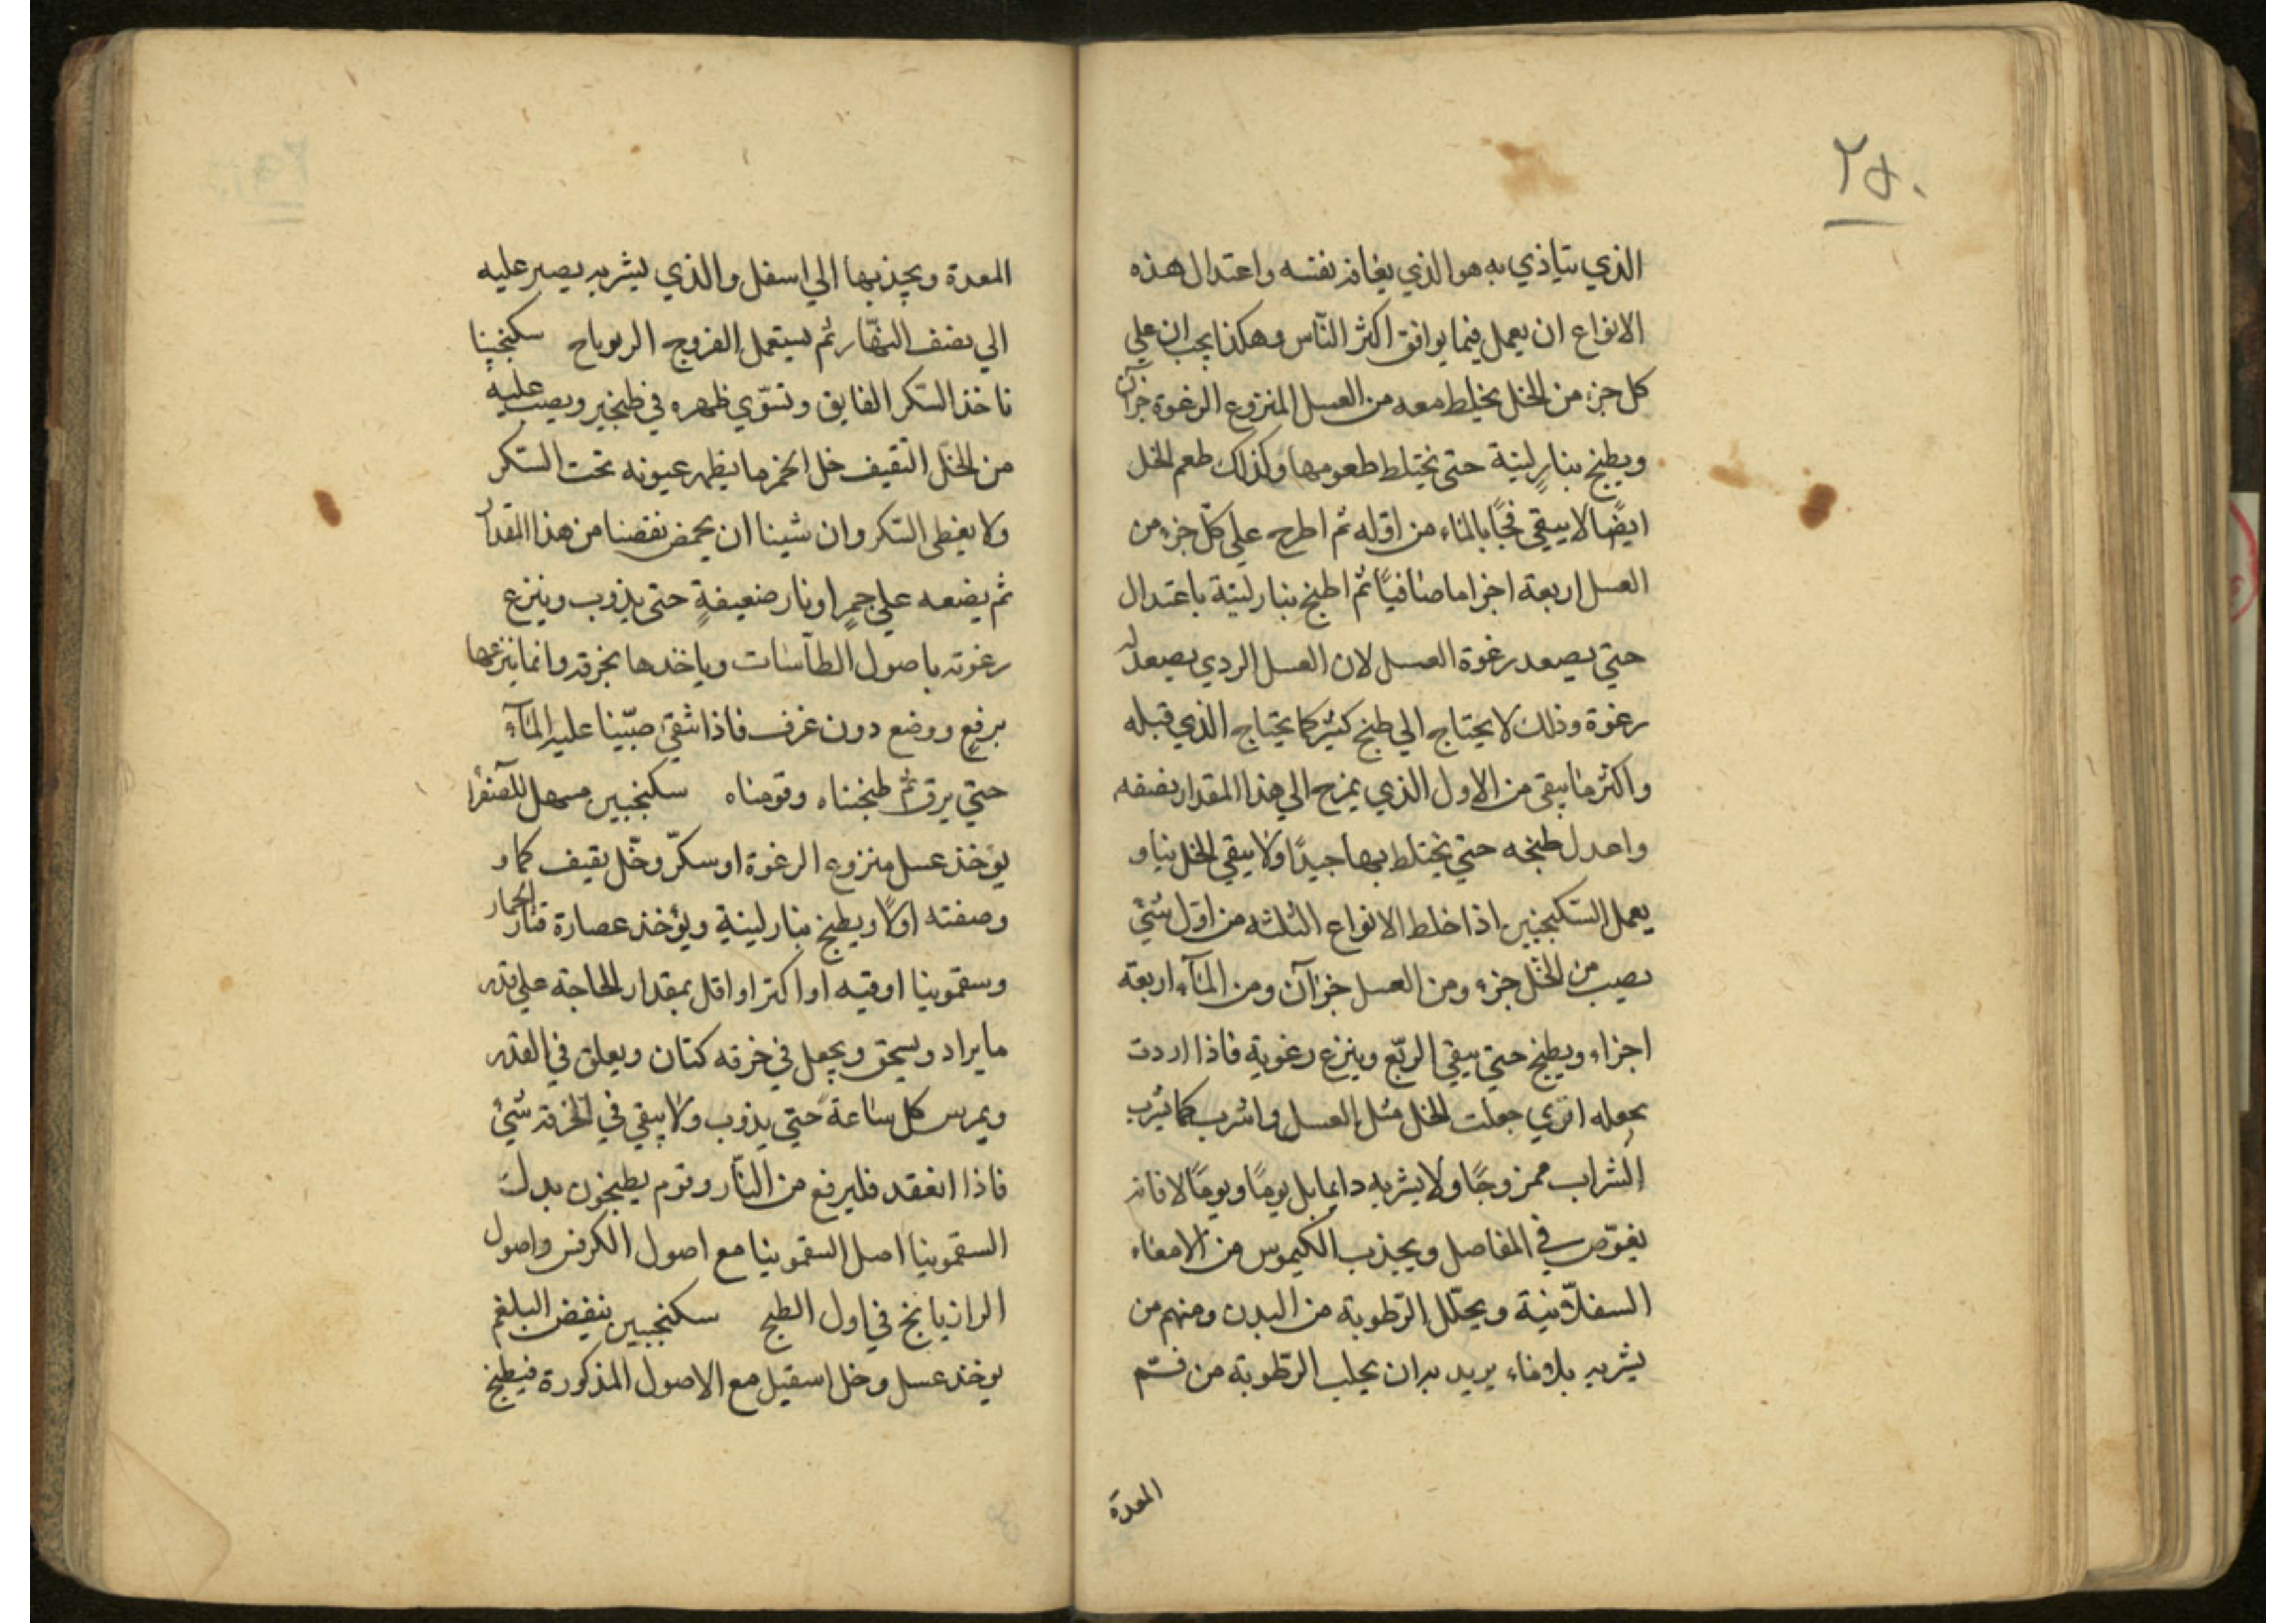 ٢٥٠
الذي يتاذي به هو الذي يعافه نفسه واعتدال هذه
الانواع ان يعمل فيما يوافق اكثر النّاس وهكذا يجب ان علي
كل جزء من الخل يخلط معه من العسل المنزوع الرغوة جزآن
ويطبخ بنارٍ لينة حتى يختلط طعومها وكذلك طعم الخل
ايضًا لا يبقي فجًا بالماء من اوّله ثم اطرح علي كلّ جزء من
العسل اربعة اجزا ما صافيًا ثم اطبخ بنار لينة باعتدال
حتي يصعد رغوة العسل لان العسل الردي يصعد له
رغوة وذلك لا يحتاج الي طبخ كثير كما يحتاج الذي قبله
واكثر ما يبقي من الاول الذي يمزج الي هذا المقدار نصفه
واعدل طبخه حتي يختلط بها جيدًا ولا يبقي الخل نيا و
يعمل السّكنجبين اذا خلط الانواع الثلثه من اوّل شئ
يصب من الخّل جزء ومن العسل جزآن ومن المآء اربعة
اجزاء ويطبخ حتي يبقي الربّع وينزع رغويه فاذا اردت
يجعله اقوي جعلت الخل مثل العسل واشرب كما يشرب
الشراب ممزوجًا ولا يشربه دايما بل يومًا ويومًا لا فانه
يغوّص في المفاصل ويجذب الكيموس من الامعاء
السفلّانية ويحلّل الرّطوبة من البدن ومنهم من
يشربه بلا ماء يريد به ان يجلب الرّطوبة من فّم
المعدة
المعدة ويجذبها الي اسفل والذي يشربه يصبر عليه
الي نصف النهّار ثم يستعمل الفروج الربوباح سكنجبينا
ناخذ السّكر الفايق ونسّوي ظهره في طنجير ويصب عليه
من الخل الثقيف خل الخمر ما يظهر عيونه تحت السّكر
ولا يغطي السّكر وان شينا ان يحمض نقصنا من هذا المقدار
ثم يضعه علي جمرٍ او نار ضعيفةٍ حتى يذوب وينزع
رغوته باصول الطاّسات وياخذها بخرقه وانما ينزعها
برفعٍ ووضع دون غرف فاذا نقي صبّينا عليه المآء
حتي يرق ثم طبخناه وقومناه سكنجبين مسهل للصفرا
يؤخذ عسل منزوع الرغوة او سكّر وخّل ثقيف كما و
وصفته اولًا ويطبخ بنار لينةٍ ويؤخذ عصارة قثار الحمار
وسقمونيا اوقيه او اكثر او اقل بمقدار الحاجة علي قدر
ما يراد ويسحق ويجعل في خرقه كتان ويعلق في القدر
ويمرس كل ساعة حتي يذوب ولا يبقي في الخرقة شئ
فاذا انعقد فليرفع من النّار وقوم يطبخون بدلَ
السقمونيا اصل السقمونيا مع اصول الكرفس واصول
الرازيانج في اول الطبخ سكنجبين ينفض البلغم
يوخذ عسل وخل اسقيل مع الاصول المذكورة فيطبخ